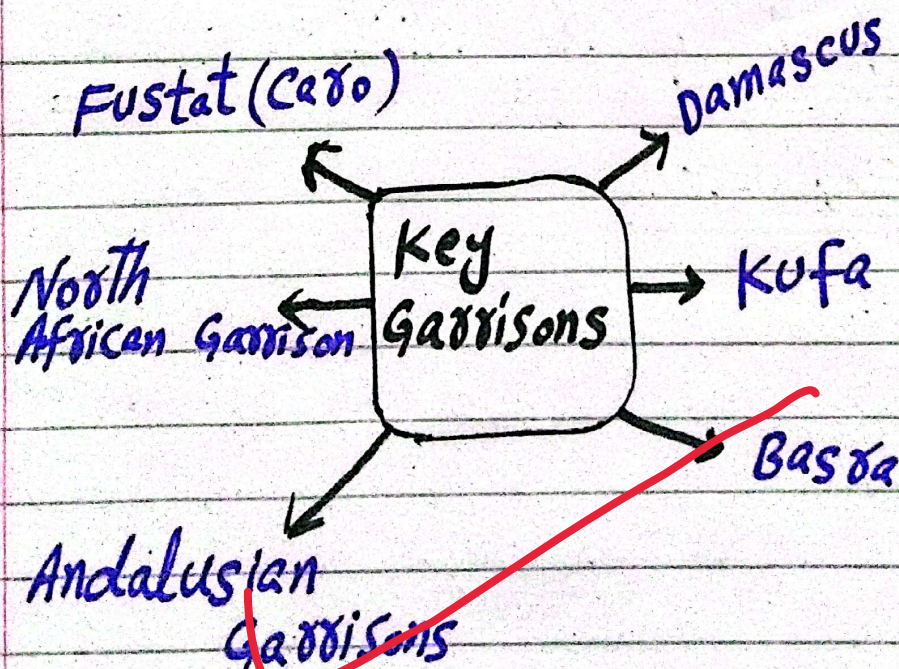 Fustat (Caro)
Damascus
Key
Garrisons
Kufa
North
African Garrison
Basra
Andalusian
Garrisons